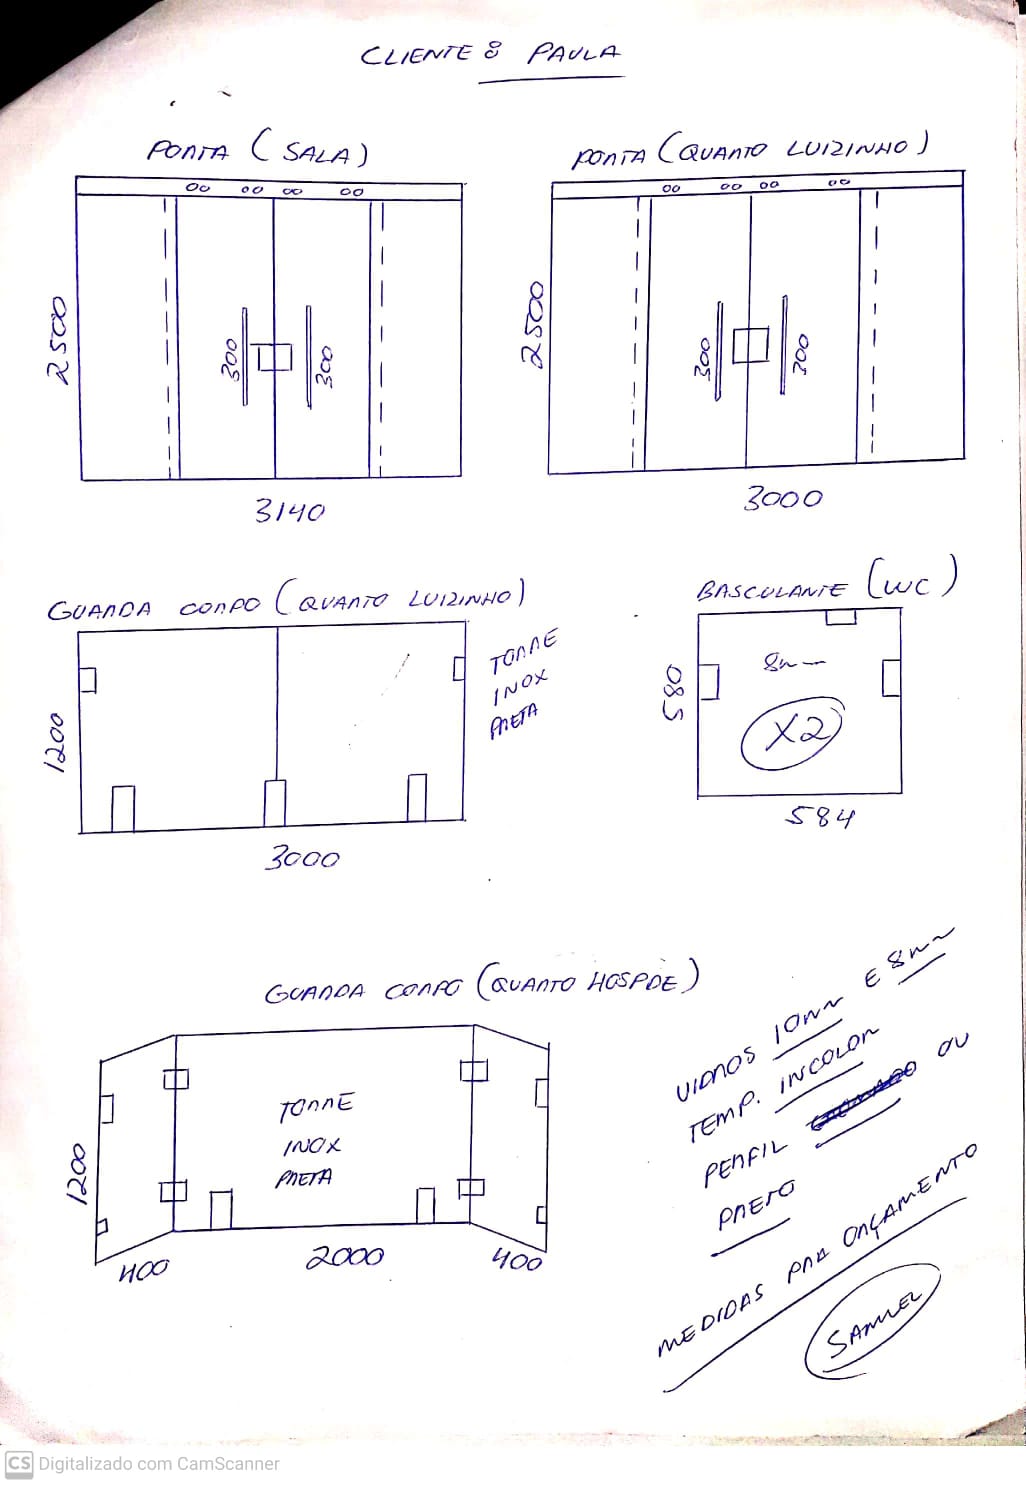 CLIENTE: PAULA
PORTA (SALA)
PORTA (QUARTO LUIZINHO)
2500
300
300
3140
2500
300
300
3000
GUARDA CORPO (QUARTO LUIZINHO)
1200
3000
TORRE
INOX
PRETA
BASCULANTE (WC)
580
8mm
X2
584
GUARDA CORPO (QUARTO HOSPDE)
1200
TORRE
INOX
PRETA
400
2000
400
VIDROS 10mm E 8mm
TEMP. INCOLOR
PERFIL OU
PRETO
MEDIDAS PARA ORÇAMENTO
SAMUEL
CS Digitalizado com CamScanner